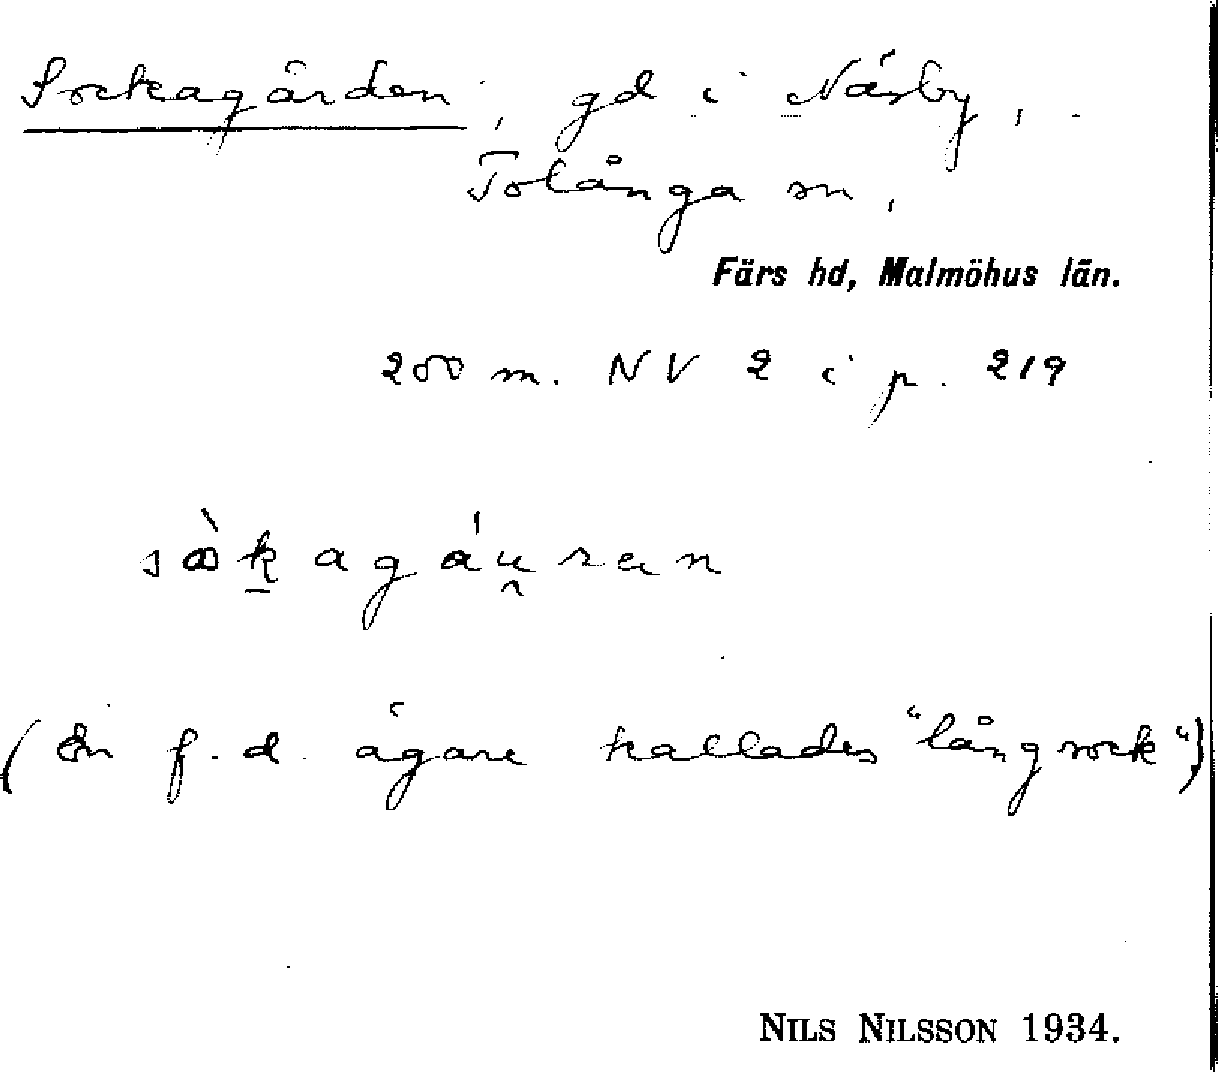 Sockagården, gd i Näsby,
Tolånga sn,
Färs hd, Malmöhus län.
200 m. NV 2 i p. 219
(En f.d. ägare kallades "långrock")
NILS NILSSON 1934.